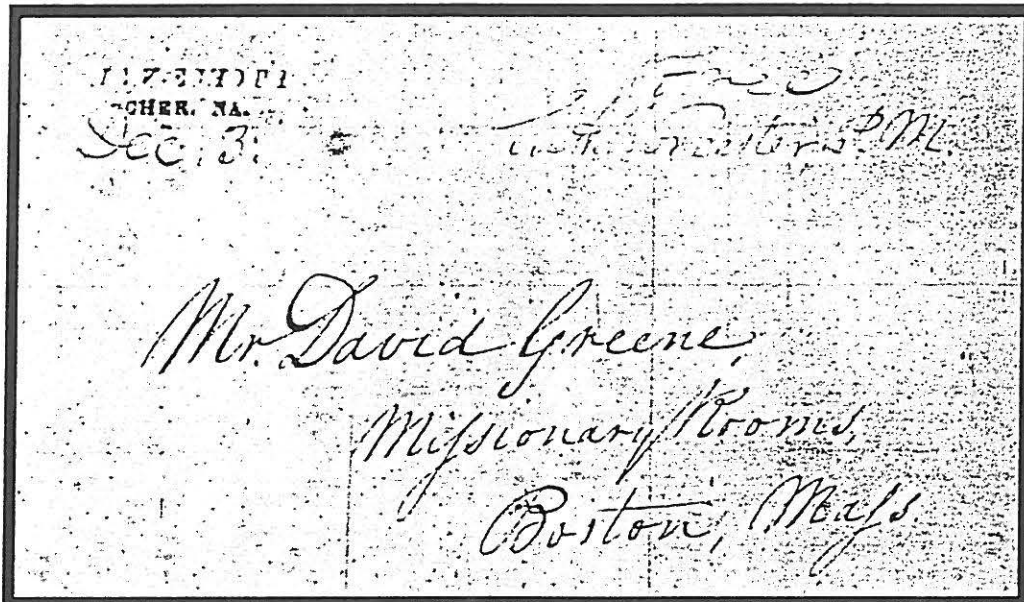 CHER. NA.
Dec. 3.
Free
Worcester, P.M.
Mr. David Greene,
Miſsionary Rooms,
Boston, Maſs.